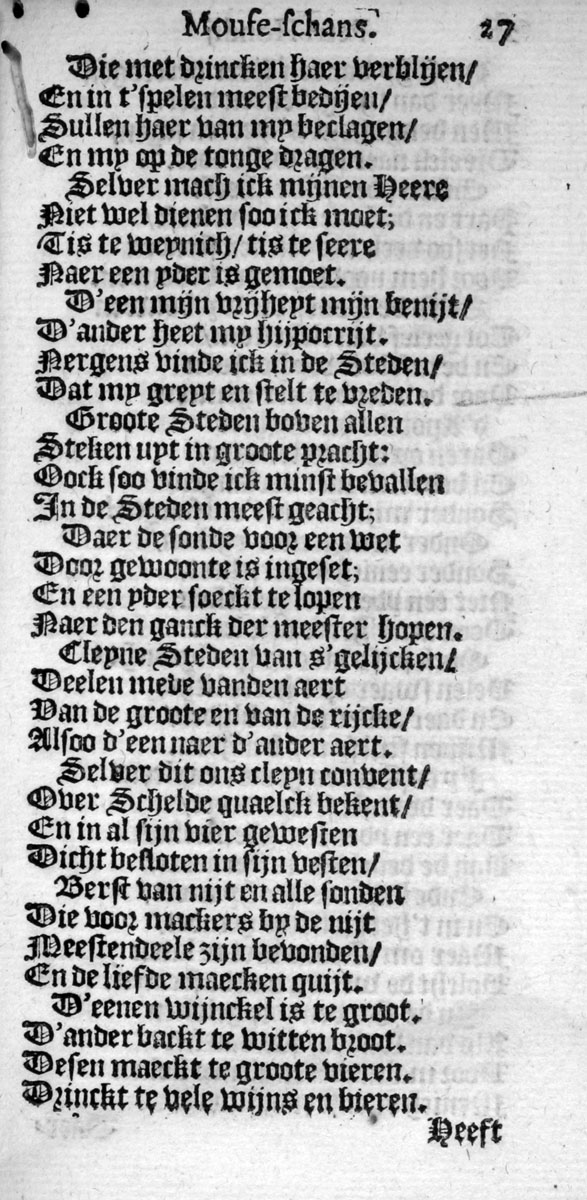 Mouse-schans. 27
Die met drincken haer verblijen/
En in t'spelen meest bedijen/
Sullen haer van my beclagen/
En my op de tonge dragen.
Selver mach ick mijnen Heere
Niet wel dienen soo ick moet;
Tis te weynich/ tis te seere
Naer een yder is gemoet.
D'een mijn vrijheyt mijn benijt/
D'ander heet my hijpocrijt.
Nergens vinde ick in de Steden/
Dat my greyt en stelt te vreden.
Groote Steden boven allen
Steken uyt in groote pracht:
Oock soo vinde ick minst bevallen
In de Steden meest geacht;
Daer de sonde voor een wet
Door gewoonte is ingeset;
En een yder soeckt te lopen
Naer den ganck der meester hopen.
Cleyne Steden van s'gelijcken/
Deelen meve vanden aert
Van de groote en van de rijcke/
Alsoo d'een naer d'ander aert.
Selver dit ons cleyn convent/
Over Schelde quaelck bekent/
En in al sijn vier gewesten
Dicht besloten in sijn vesten/
Berst van nijt en alle sonden
Die voor mackers by de nijt
Meestendeele zijn bevonden/
En de liefde maecken quijt.
D'eenen wijnckel is te groot.
D'ander backt te witten broot.
Desen maeckt te groote vieren.
Drinckt te vele wijns en bieren.
Heeft